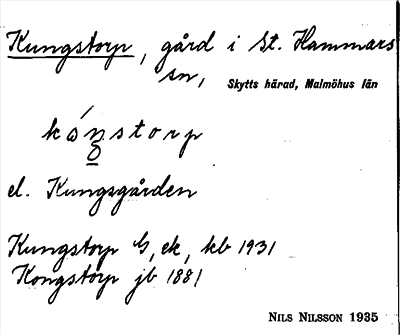 Kungstorp, gård i St. Hammars
sn, Skytts härad, Malmöhus län
kó̱nstorp
el. Kungsgården
Kungstorp G, ek, kb 1931
Kongstorp jb 1881
NILS NILSSON 1935